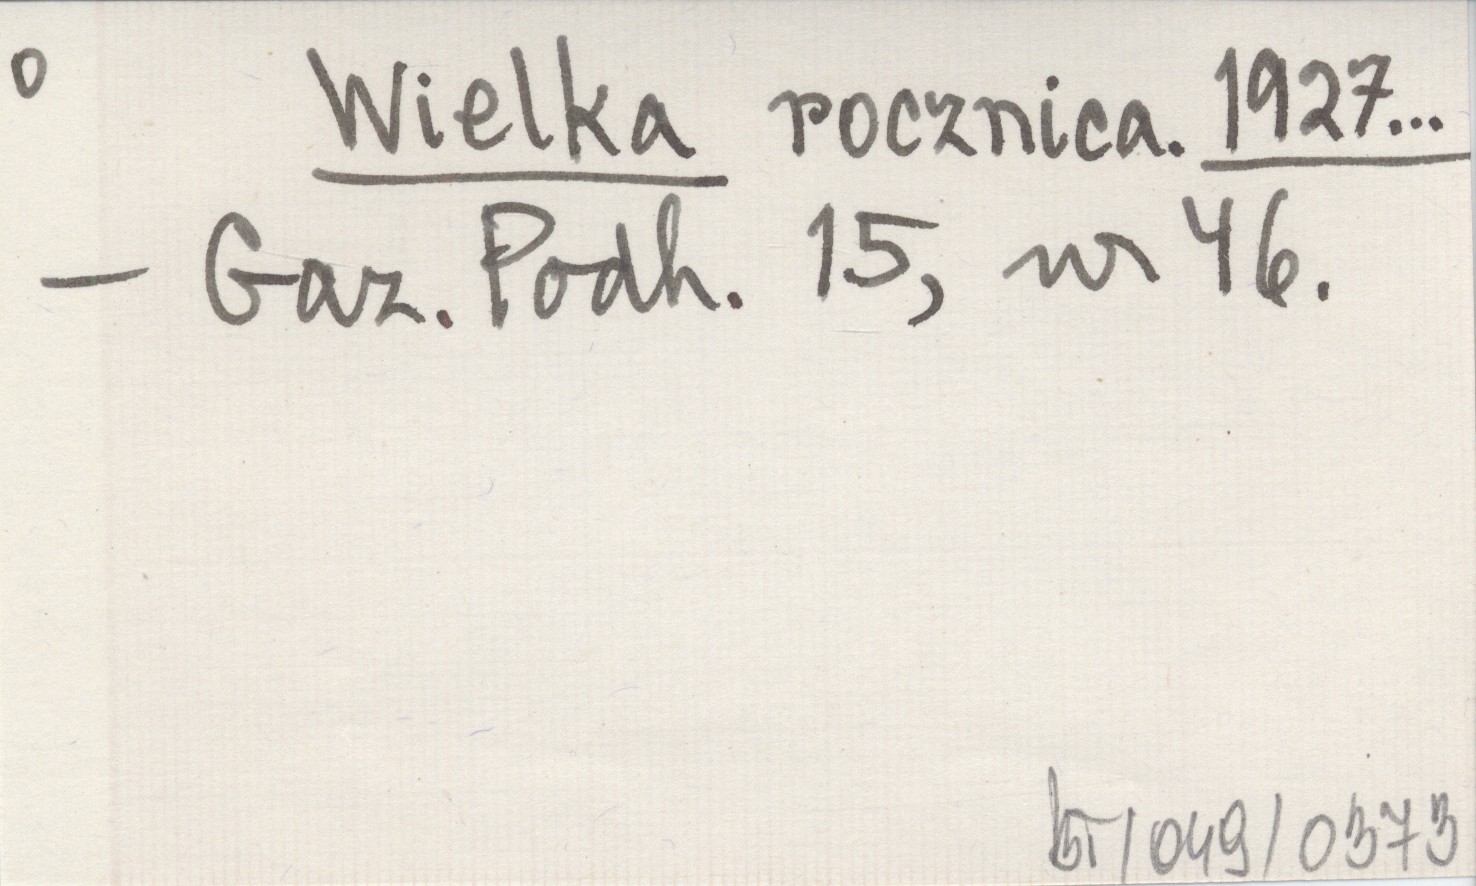 o Wielka rocznica. 1927...
— Gaz. Podh. 15, nr 46.
/049/0373